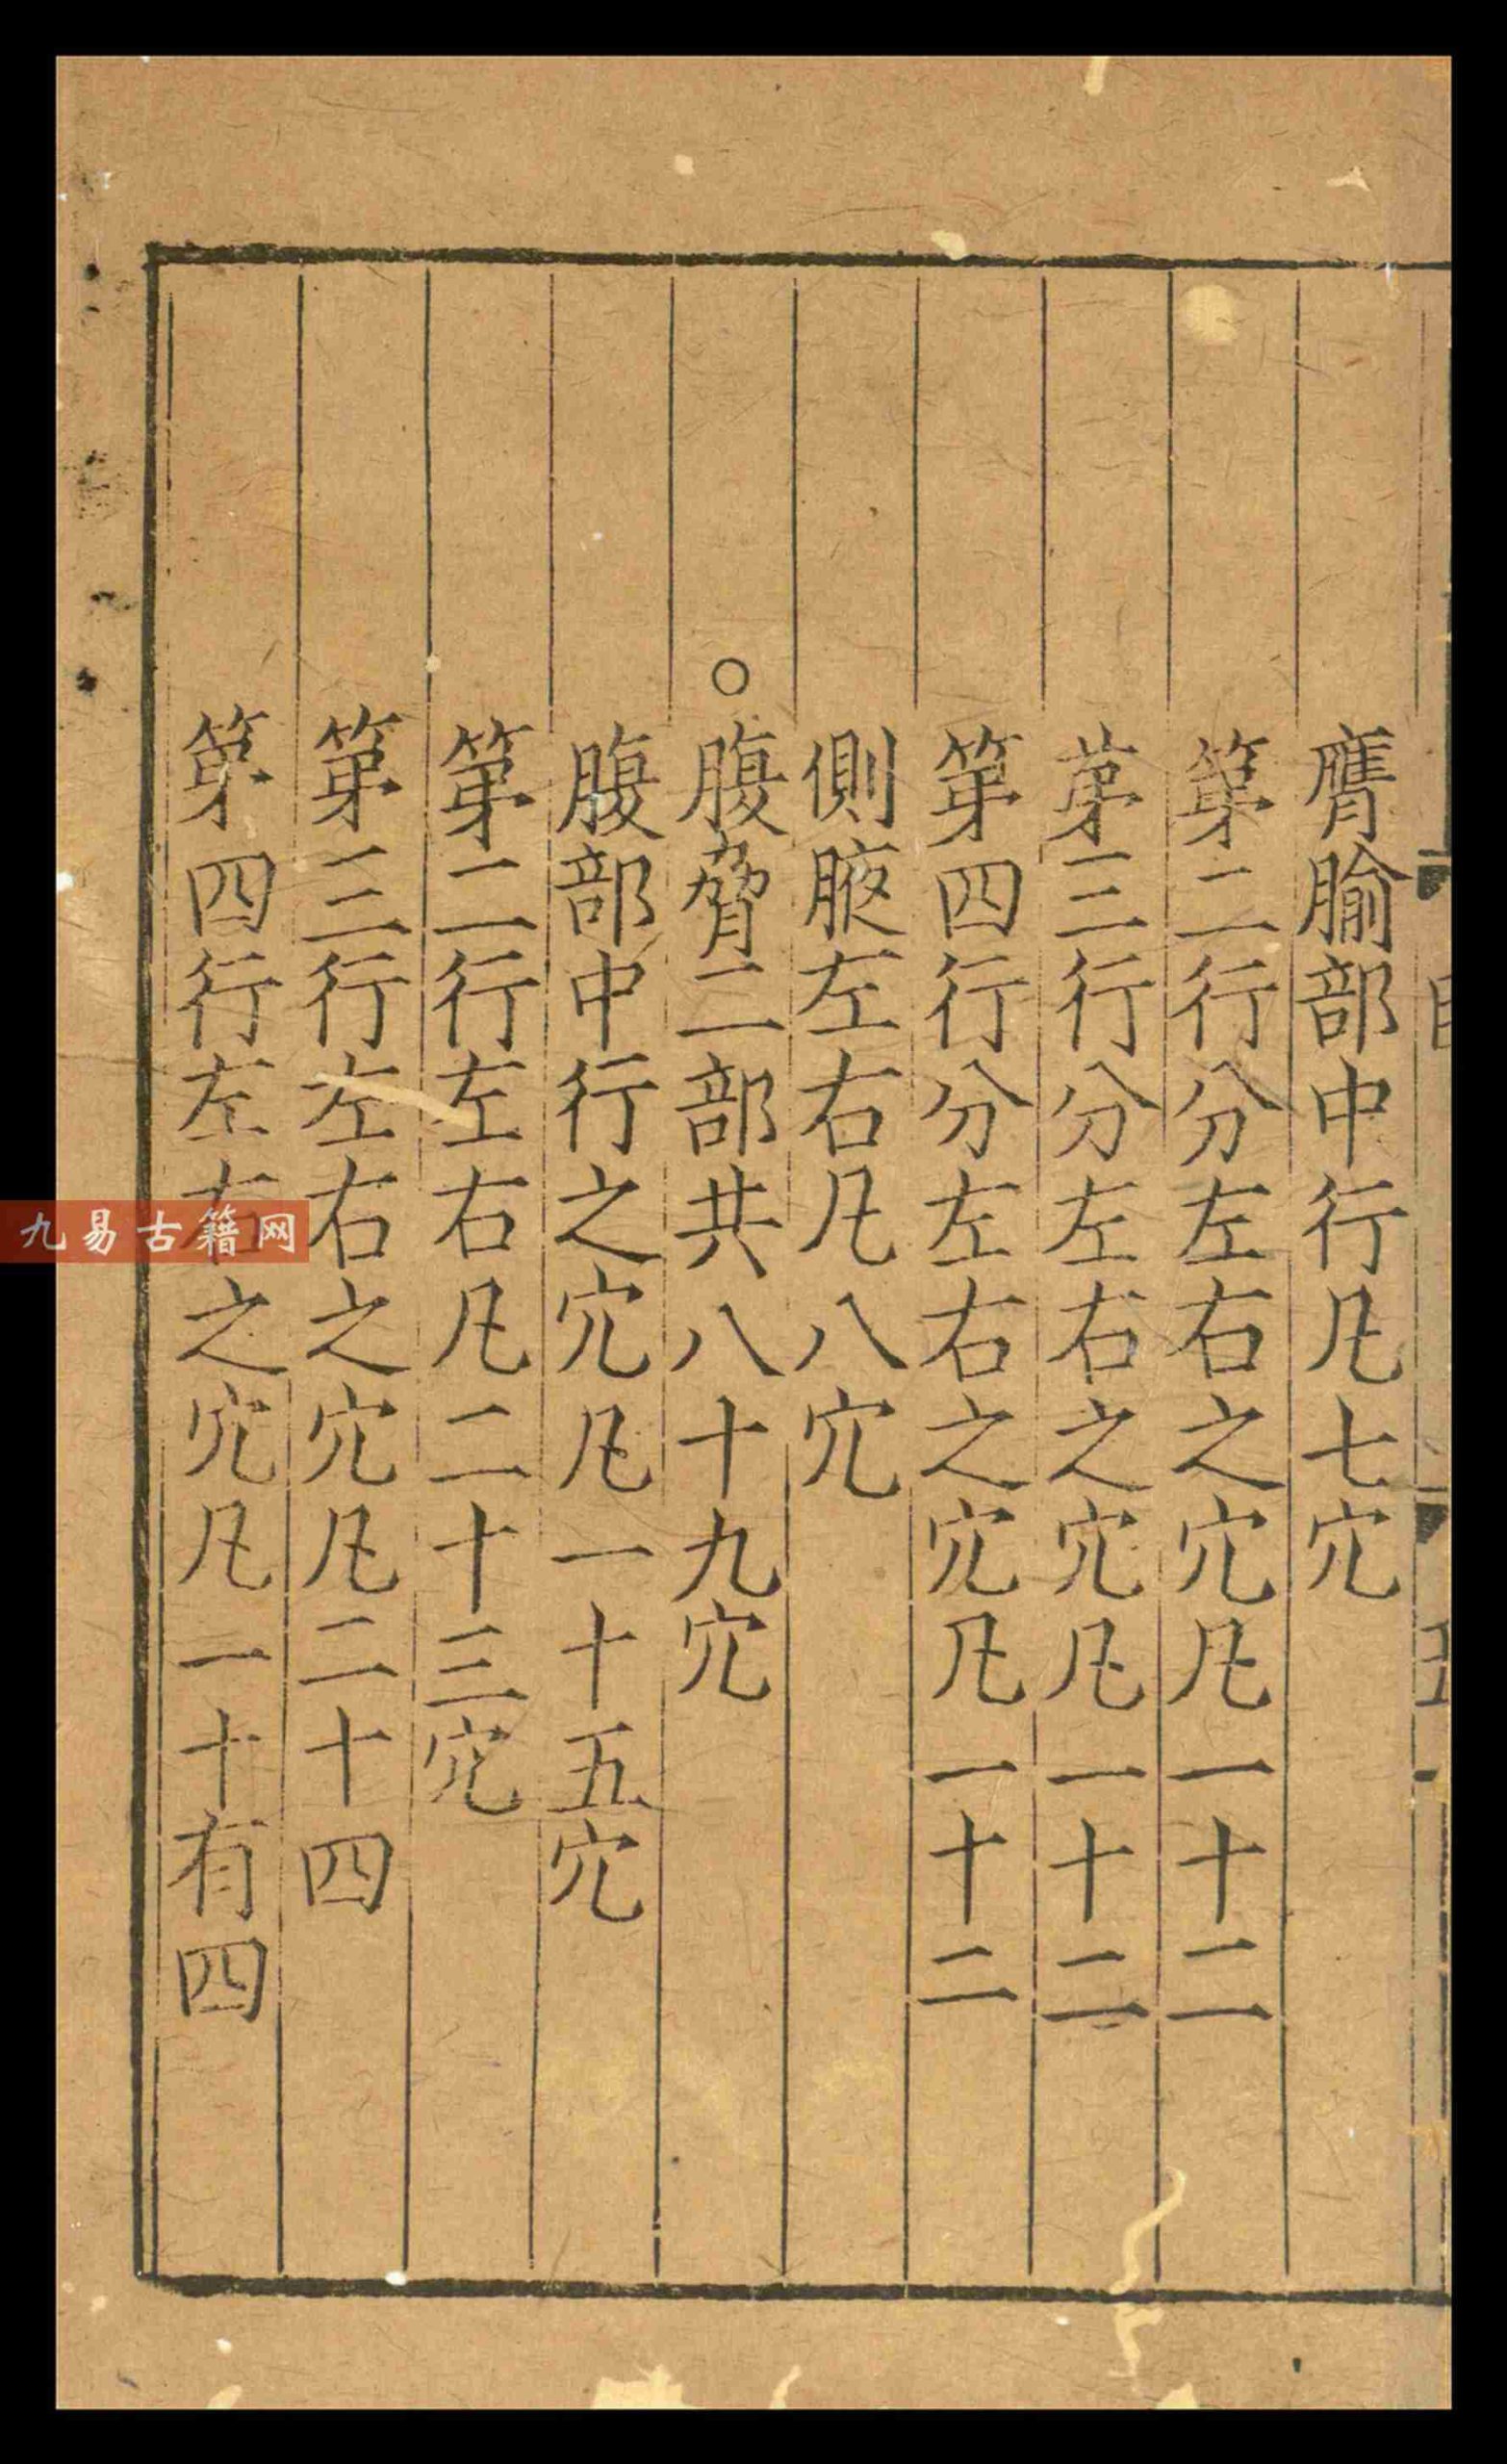 膺腧部中行凡七穴
第二行分左右之穴凡一十二
苐三行分左右之穴凡一十二
第四行分左右之穴凡一十二
側腋左右凡八穴
○腹脅二部共八十九穴
腹部中行之穴凡一十五穴
第二行左右凡二十三穴
第三行左右之穴凡二十四
第四行左右之穴凡一十有四
九易古籍网